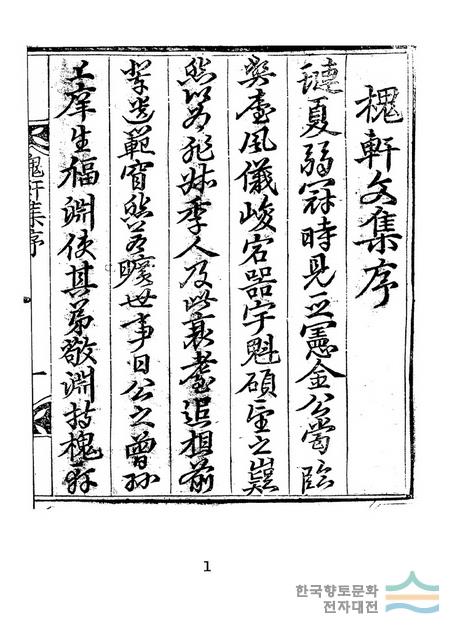 槐軒文集序
璉夏弱冠時見立憲金公嘗臨
弊廬風儀峻宕器宇魁碩望之嶷
然以為非叔季人及此衰耄追想前
輩遺範窅然若曠世事日公之曾孫
上庠生福淵使其弟敬淵持槐軒
槐軒集序
一
1
한국향토문화
전자대전